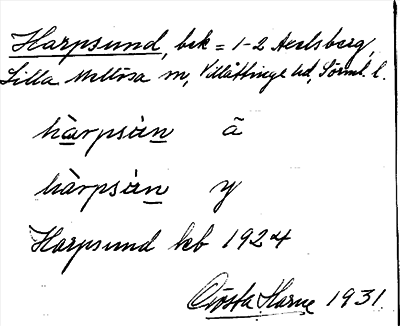 Harpsund, bek = 1-2 Axelsberg,
Lilla Mellösa sn, Villåttinge hd, Sörml. l.
hàrpsùn ä
hàrpsùn y
Harpsund kb 1924
Gösta Harne 1931